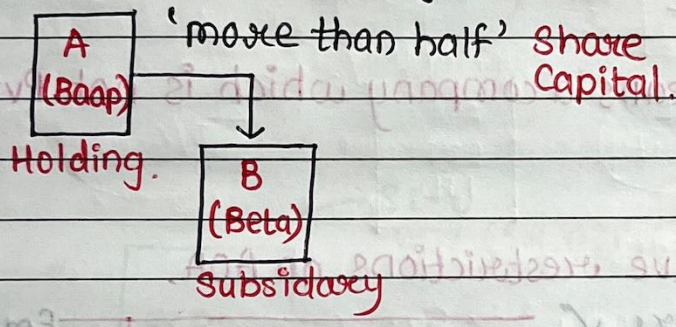 A
(Baap)
Holding.
'more than half' Share
Capital.
B
(Beta)
Subsidarey